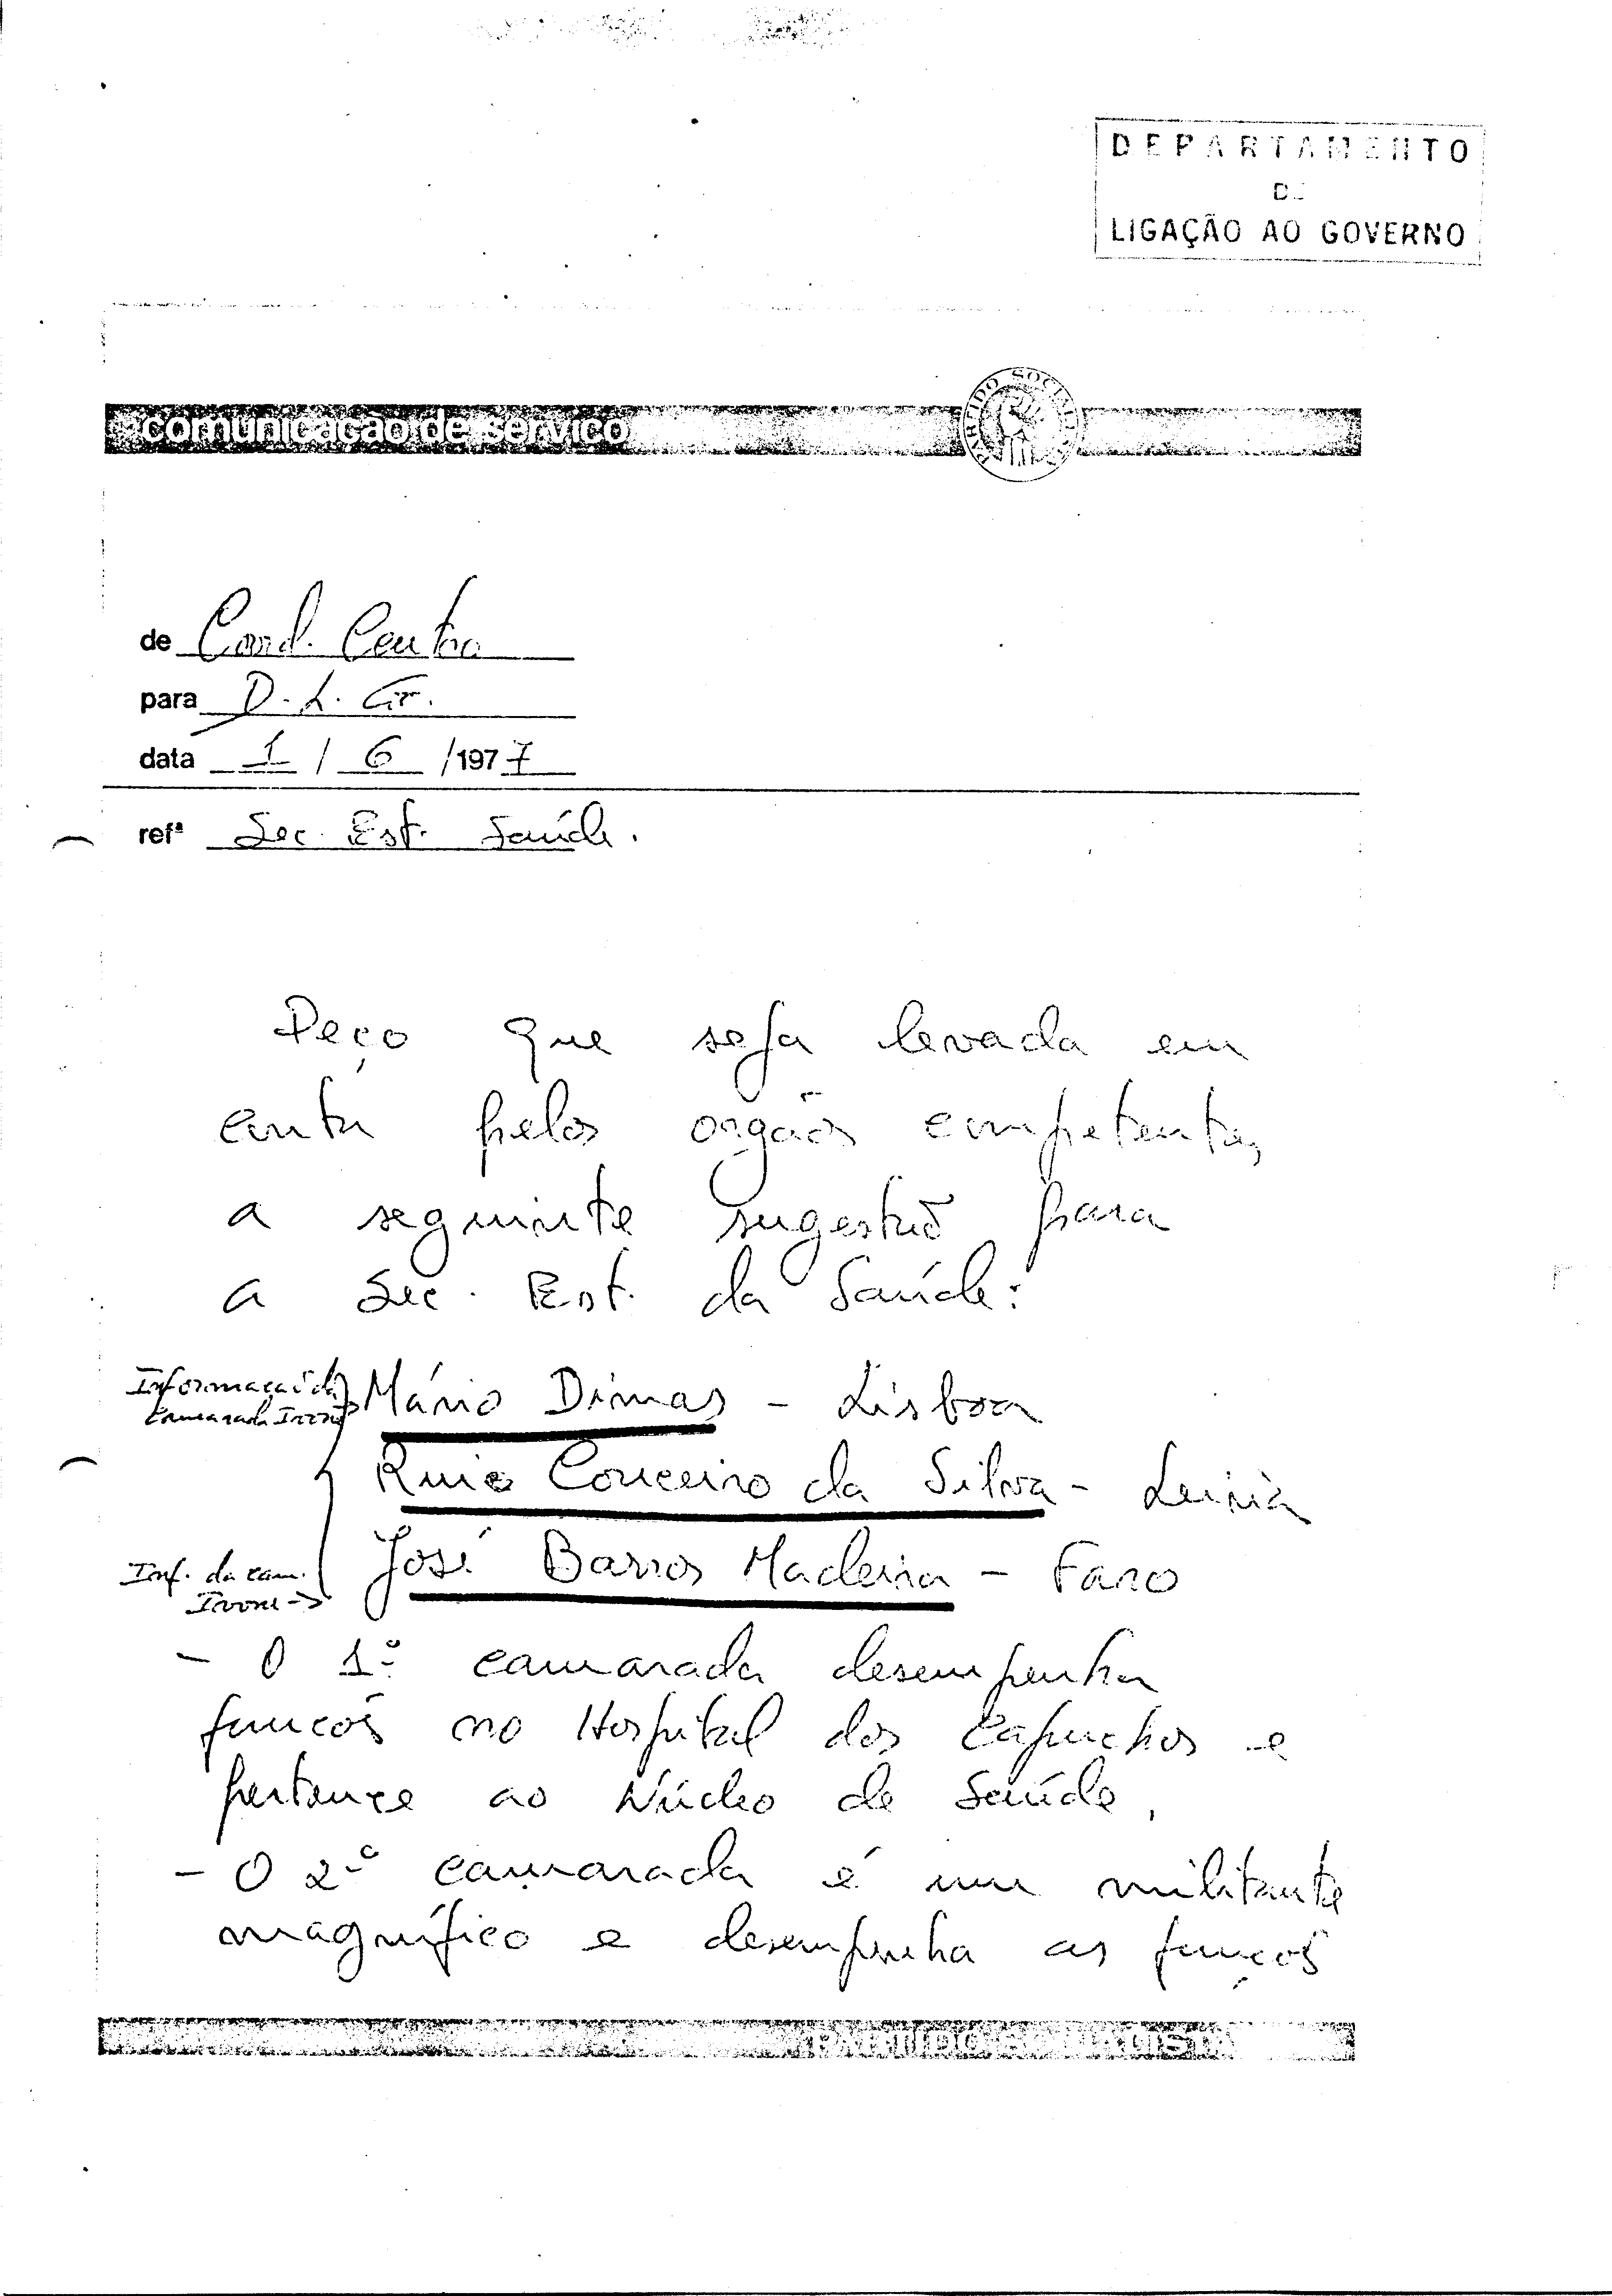 DEPARTAMENTO
DE
LIGAÇÃO AO GOVERNO
comunicação de serviço
de Coord. Centro
para D. L. G.
data 1 / 6 /1977
refª Sec. Est. Saúde.
Peço que seja levada em
conta pelos orgãos competentes,
a seguinte sugestão para
a Sec. Est. da Saúde:
Informação do
camarada
Mário Dimas - Lisboa
da Silva - Leiria
José Barros Madeira - Faro
Inf. do cam.
- O 1º camarada desempenha
funções no Hospital dos Capuchos e
pertence ao Núcleo de Saúde,
- O 2º camarada é um militante
magnífico e desempenha as funções